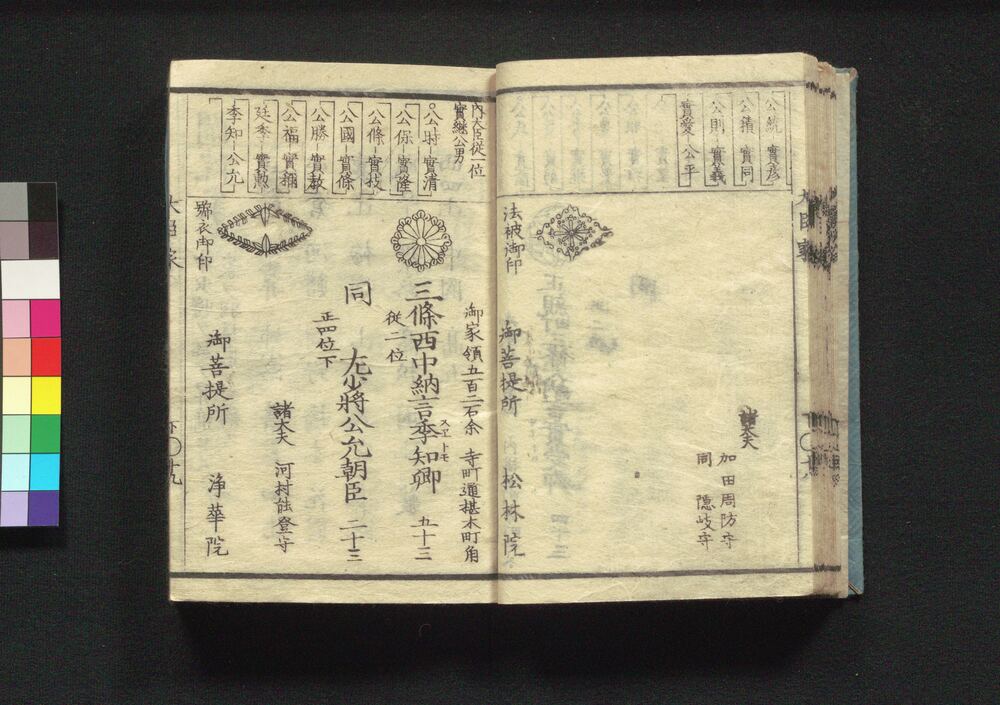 公統 實彦
公積 實同
公則 實義
實愛 公平
諸大夫
加田周防守
同 隠岐守
法被御印
御菩提所 松林院
内大臣従一位
實継公男
公時 實清
公保 實隆
公條 實枝
公國 實條
公勝 實教
公福 實稱
廷季 實勲
季知 公允
御家領五百二石余 寺町通椹木町角
三條西中納言季知卿 五十三
スヱトモ
従二位
同 左少将公允朝臣 二十三
正四位下
諸大夫 河村能登守
褐衣御印
御菩提所 浄華院